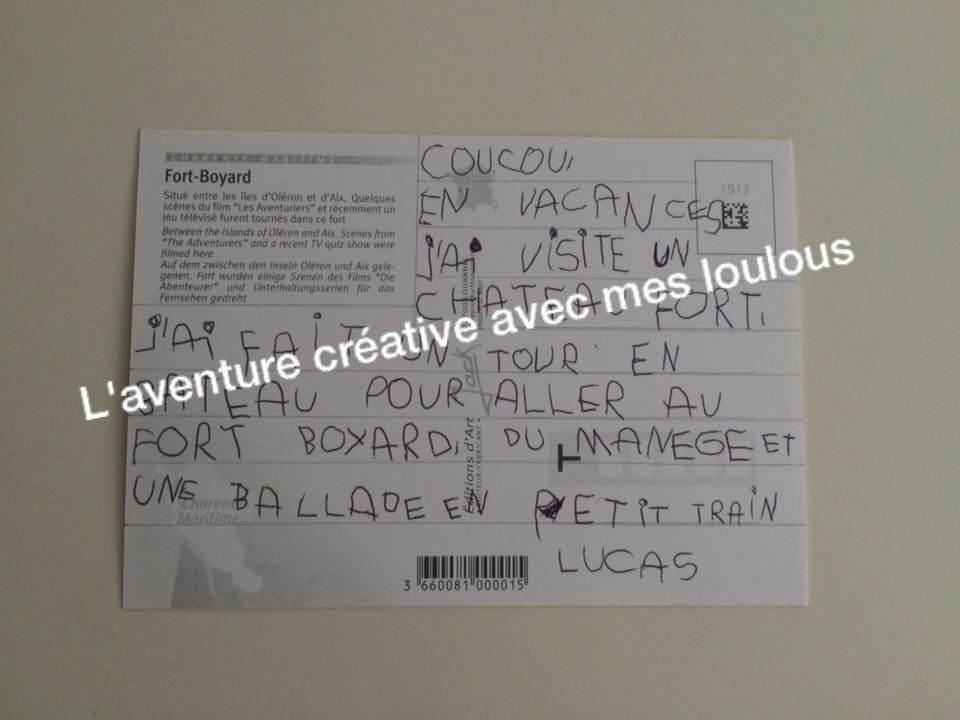 CHARENTE-MARITIME
Fort-Boyard
Situé entre les îles d'Oléron et d'Aix. Quelques
scènes du film "Les Aventuriers" et récemment un
jeu télévisé furent tournés dans ce fort
Between the islands of Oléron and Aix, Scenes from
"The Adventurers" and a recent TV quiz show were
filmed here
Auf dem zwischen den Inseln Oléron und Aix gele-
genen. Fort wurden einige Szenen des Films "Die
Abenteurer" und Unterhaltungsserien für das
Fernsehen gedreht
1913
COUCOU,
EN VACANCES
J'Ai ViSiTE UN
CHATEAU FORT,
J'Ai FAiT UN TOUR EN
BATEAU POUR ALLER AU
FORT BOYARD, DU MANEGE ET
UNE BALLADE EN PETiT TRAiN
LUCAS
L'aventure créative avec mes loulous
Jack
Éditions d'Art
Charente
Maritime
3 660081 000015